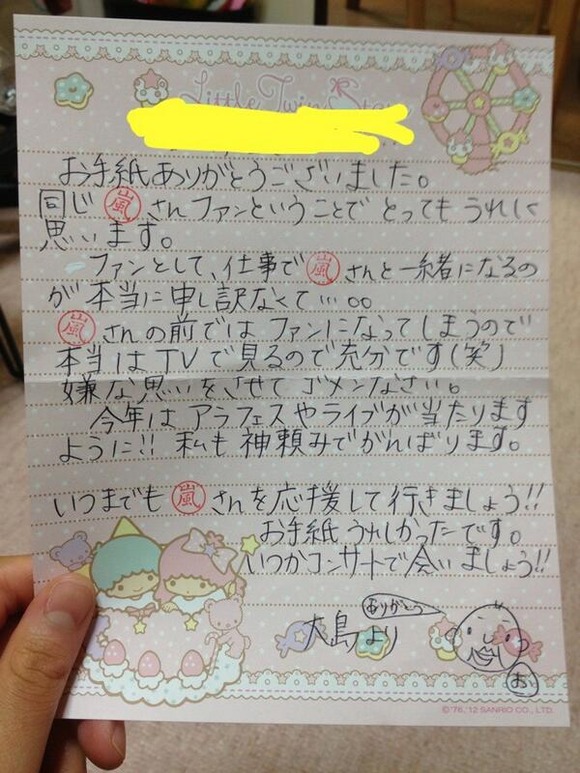 Little Twin Stars
お手紙ありがとうございました。
同じ嵐さんファンということでとってもうれしく
思います。
ファンとして、仕事で嵐さんと一緒になるの
が本当に申し訳なくて…。。
嵐さんの前ではファンになってしまうので
本当はTVで見るので充分です(笑)
嫌な思いをさせてゴメンなさい。
今年はアラフェスやライブが当たります
ように!! 私も神頼みでがんばります。
いつまでも嵐さんを応援して行きましょう!!
お手紙うれしかったです。
いつかコンサートで会いましょう!!
ありがとう
大島より
お
©'76,'12 SANRIO CO., LTD.